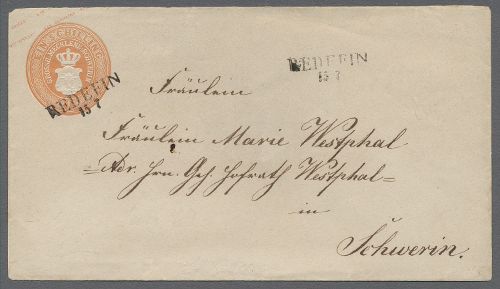 EIN SCHILLING
REDEFIN
15 7
REDEFIN
15 7
Fräulein
Fräulein Marie Westphal
=Adr. Hrn. Geh. Hofrath Westphal=
in
Schwerin.